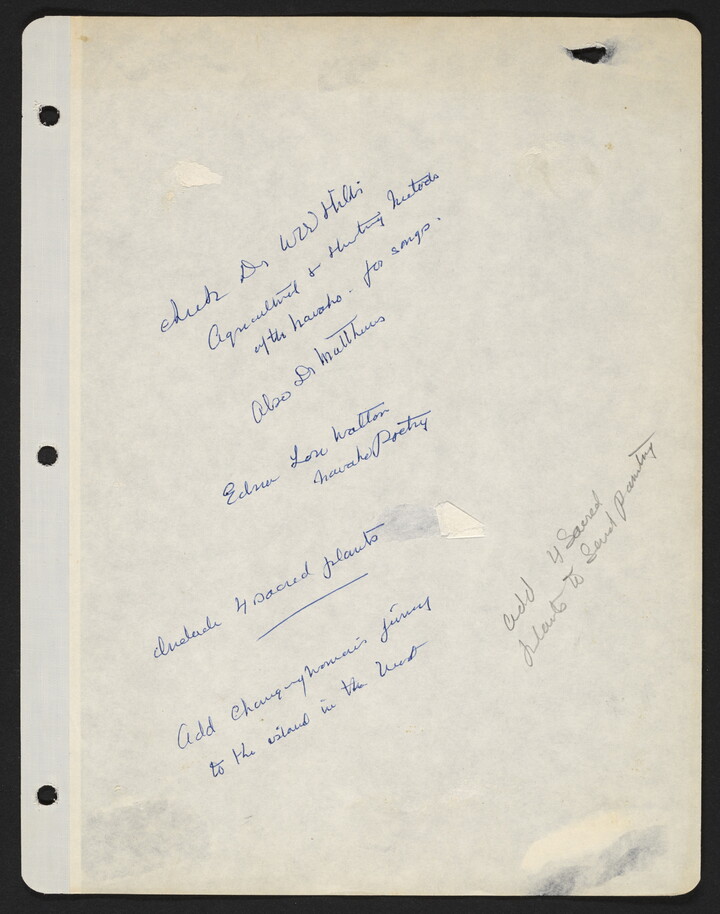 check Dr WW Hills
Agricultural & Hunting Metods
of the Navaho. for songs.
Also Dr Matthews
Edna Lou Walton
Navaho Poetry
Include 4 sacred plants
Add Changingwoman's
to the island in the West
add 4 Sacred
plants to Sand Painting